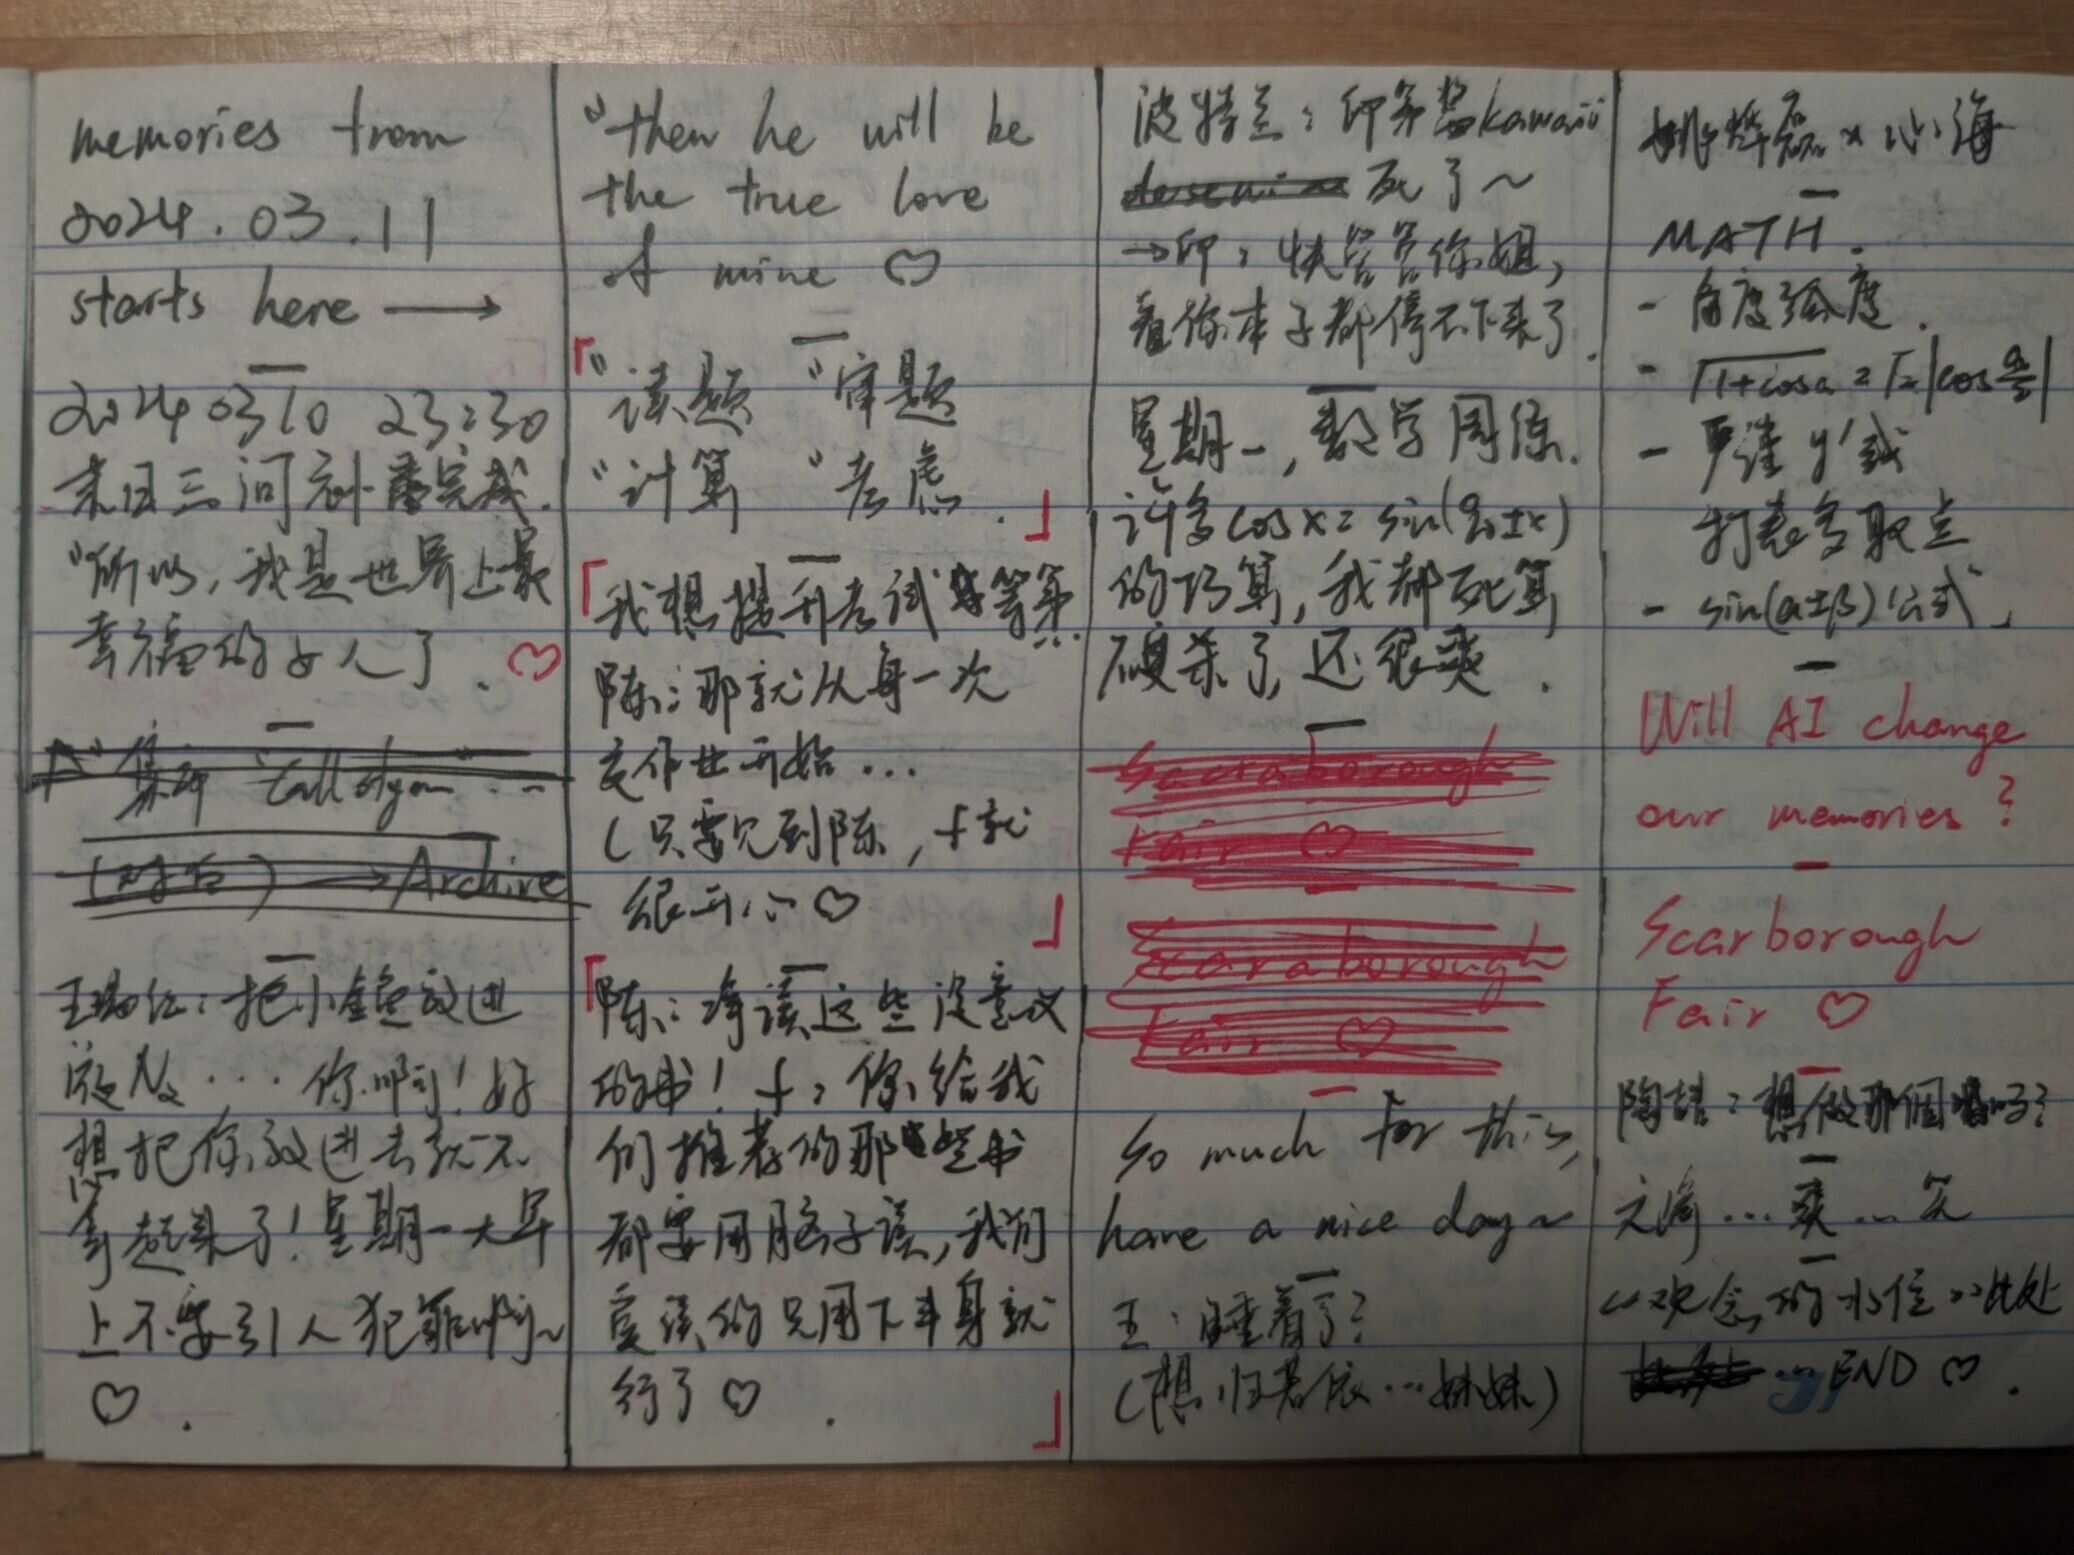 memories from
2024.03.11
starts here →
20240310 23:30
末日三问 补番完成.
"所以, 我是世界上最
幸福的女人了. ♡
"Call of
→ Archive
王: 把小鱼放进
液N₂ ... 你啊! 好
想把你放进去就不
拿起来了! 星期一大早
上不要引人犯罪啊~
♡ .
"then he will be
the true love
of mine ♡
「"读题 "审题
"计算 "考虑 . 」
「我想提升考试
陈: 那就从每一次
交作业开始...
(只要见到陈, 十就
很开心♡ 」
「陈: 净读这些没意义
的书! 十: 你给我
们推荐的那些书
都要用脑子读, 我们
爱读的只用下半身就
行了♡ . 」
波特兰: 印第 kawaii
死了~
→印: 快管管你姐,
看你本子都停不下来了.
星期一, 数学周练.
许多cosx=sin(90±x)
的巧算, 我都死算
硬杀了, 还很爽 .
Scaraborough
Fair ♡
Scaraborough
Fair ♡
So much for this,
have a nice day~
王: 睡着了?
(想 归若依...妹妹)
姚烨磊×心海
MATH.
- 角度弧度.
- √1+cosα = √2|cos α/2|
- 严谨 y'
打表多取点
- sin(α±β)公式,
Will AI change
our memories?
Scarborough
Fair ♡
陶喆: 想做那個嗎?
...爽...笑
"观念的水位"此处
...END ♡ .